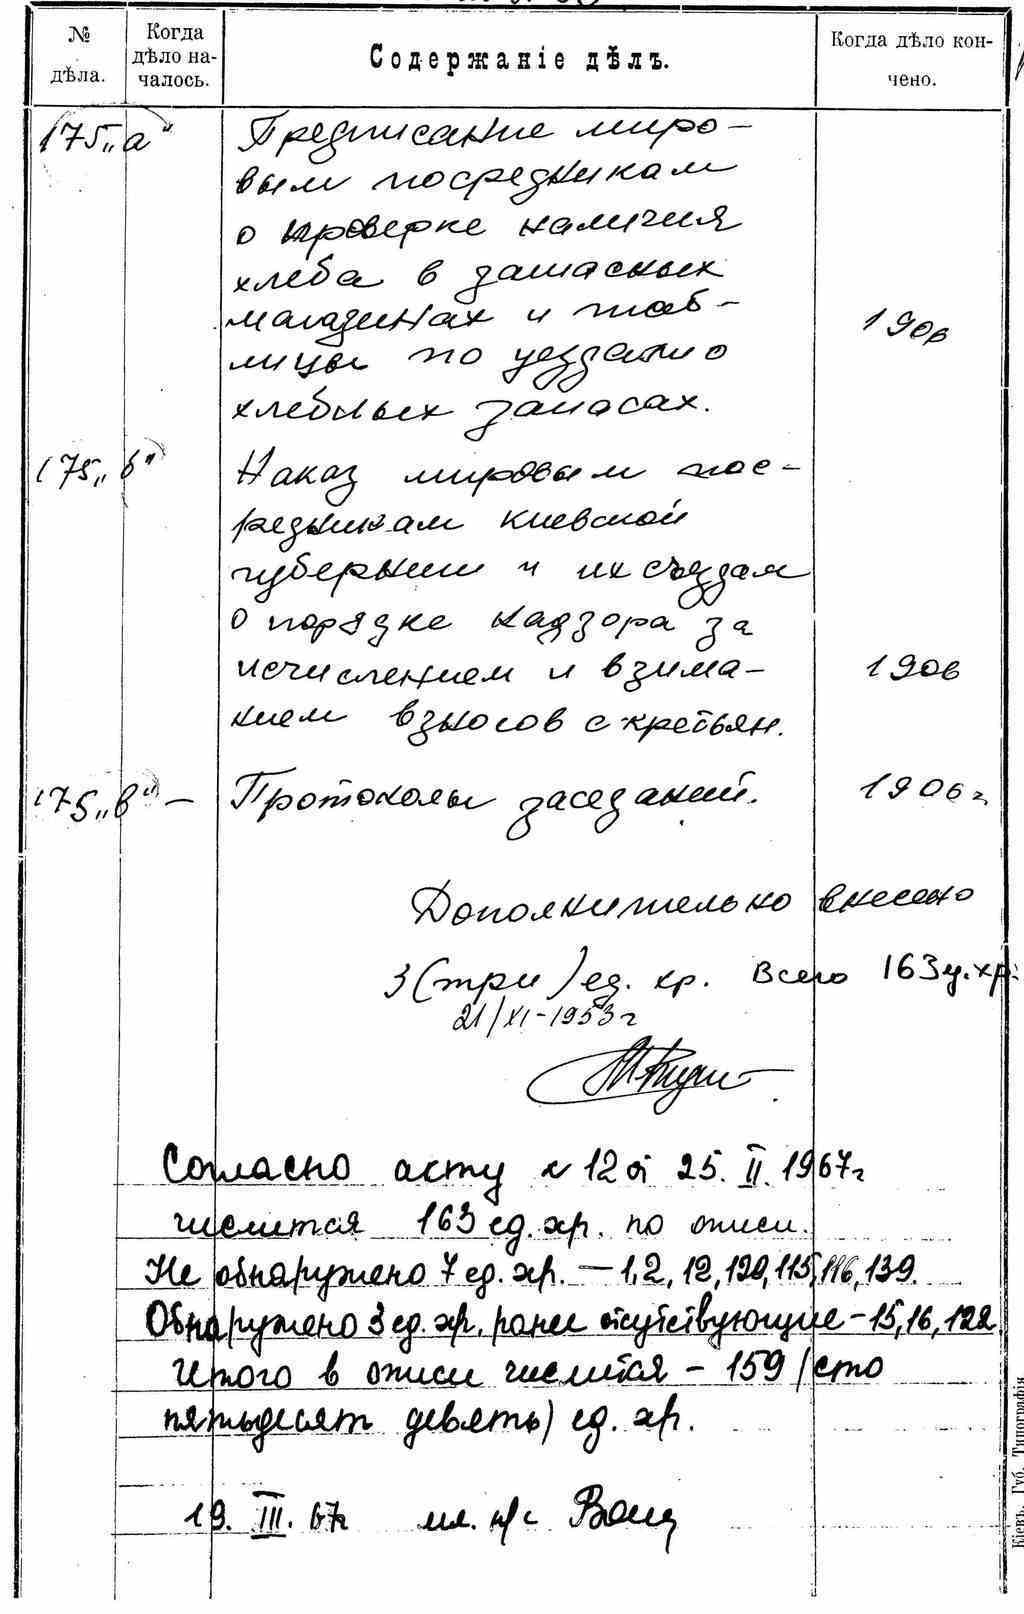 № дѣла.
Когда дѣло началось.
Содержаніе дѣлъ.
Когда дѣло кончено.
175 „а“
Предписание миро-
вым посредникам
о проверке наличия
хлеба в запасных
магазинах и таб-
лицы по уездам о
хлебных запасах.
1906
175 „б“
Наказ мировым пос-
редникам киевской
губернии и их съездам
о порядке надзора за
исчислением и взима-
нием взносов с кретьян.
1906
175 „в“ — Протоколы заседаний. 1906 г
Дополнительно внесено
3 (три) ед. хр. Всего 163 ед. хр.
21/XI-1953 г
Согласно акту № 12 от 25. II. 1967 г
числится 163 ед. хр. по описи.
Не обнаружено 7 ед. хр. — 1, 2, 12, 120, 115, 116, 139.
Обнаружено 3 ед. хр. ранее отсутствующие - 15, 16, 122
Итого в описи числится - 159 /сто
пятьдесят девять) ед. хр.
19. III. 67г мл. н/с
Кіевъ. Губ. Типографія